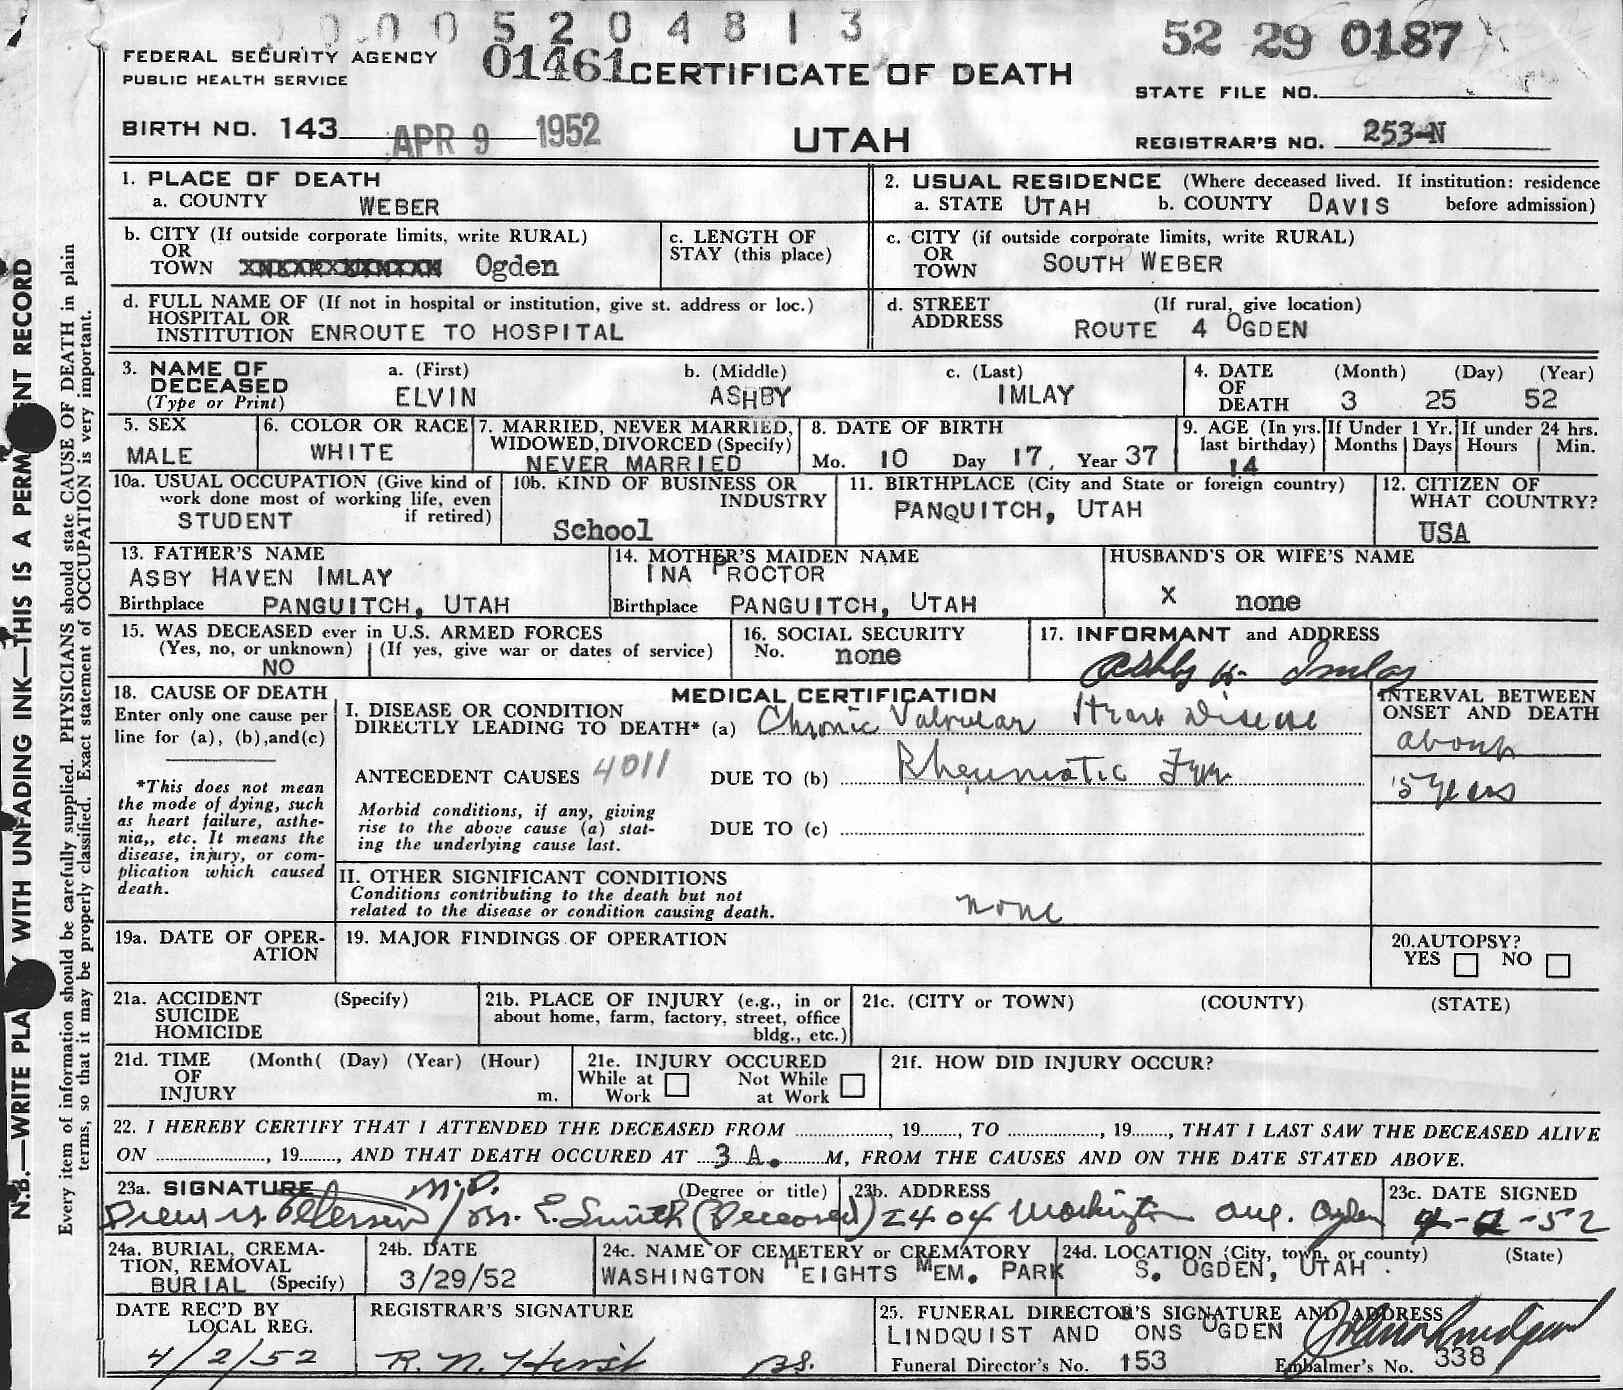 0 0 0 5 2 0 4 8 1 3
52 29 0187
FEDERAL SECURITY AGENCY
PUBLIC HEALTH SERVICE
01461 CERTIFICATE OF DEATH
STATE FILE NO.
BIRTH NO. 143 APR 9 1952
UTAH
REGISTRAR'S NO. 253-N
1. PLACE OF DEATH
a. COUNTY WEBER
2. USUAL RESIDENCE (Where deceased lived. If institution: residence before admission)
a. STATE UTAH b. COUNTY DAVIS
b. CITY (If outside corporate limits, write RURAL)
OR
TOWN Ogden
c. LENGTH OF
STAY (this place)
c. CITY (if outside corporate limits, write RURAL)
OR
TOWN SOUTH WEBER
d. FULL NAME OF (If not in hospital or institution, give st. address or loc.)
HOSPITAL OR
INSTITUTION ENROUTE TO HOSPITAL
d. STREET (If rural, give location)
ADDRESS ROUTE 4 OGDEN
3. NAME OF
DECEASED
(Type or Print)
a. (First) ELVIN
b. (Middle) ASHBY
c. (Last) IMLAY
4. DATE
OF
DEATH
(Month) (Day) (Year)
3 25 52
5. SEX
MALE
6. COLOR OR RACE
WHITE
7. MARRIED, NEVER MARRIED,
WIDOWED, DIVORCED (Specify)
NEVER MARRIED
8. DATE OF BIRTH
Mo. 10 Day 17, Year 37
9. AGE (In yrs.
last birthday)
14
If Under 1 Yr.
Months Days
If under 24 hrs.
Hours Min.
10a. USUAL OCCUPATION (Give kind of
work done most of working life, even
if retired)
STUDENT
10b. KIND OF BUSINESS OR
INDUSTRY
School
11. BIRTHPLACE (City and State or foreign country)
PANQUITCH, UTAH
12. CITIZEN OF
WHAT COUNTRY?
USA
13. FATHER'S NAME
ASBY HAVEN IMLAY
Birthplace PANGUITCH, UTAH
14. MOTHER'S MAIDEN NAME
INA PROCTOR
Birthplace PANGUITCH, UTAH
HUSBAND'S OR WIFE'S NAME
X none
15. WAS DECEASED ever in U.S. ARMED FORCES
(Yes, no, or unknown) (If yes, give war or dates of service)
NO
16. SOCIAL SECURITY
No. none
17. INFORMANT and ADDRESS
Ashby H. Imlay
18. CAUSE OF DEATH
Enter only one cause per
line for (a), (b), and (c)
*This does not mean
the mode of dying, such
as heart failure, asthe-
nia,, etc. It means the
disease, injury, or com-
plication which caused
death.
MEDICAL CERTIFICATION
I. DISEASE OR CONDITION
DIRECTLY LEADING TO DEATH* (a) Chronic Valvular Heart Disease
ANTECEDENT CAUSES 4011 DUE TO (b) Rheumatic Fever
Morbid conditions, if any, giving
rise to the above cause (a) stat-
ing the underlying cause last.
DUE TO (c)
INTERVAL BETWEEN
ONSET AND DEATH
about
5 years
II. OTHER SIGNIFICANT CONDITIONS
Conditions contributing to the death but not
related to the disease or condition causing death.
none
19a. DATE OF OPER-
ATION
19. MAJOR FINDINGS OF OPERATION
20. AUTOPSY?
YES NO
21a. ACCIDENT (Specify)
SUICIDE
HOMICIDE
21b. PLACE OF INJURY (e.g., in or
about home, farm, factory, street, office
bldg., etc.)
21c. (CITY or TOWN) (COUNTY) (STATE)
21d. TIME (Month( (Day) (Year) (Hour)
OF
INJURY m.
21e. INJURY OCCURED
While at Work Not While at Work
21f. HOW DID INJURY OCCUR?
22. I HEREBY CERTIFY THAT I ATTENDED THE DECEASED FROM , 19 , TO , 19 , THAT I LAST SAW THE DECEASED ALIVE
ON , 19 , AND THAT DEATH OCCURED AT 3 A. M, FROM THE CAUSES AND ON THE DATE STATED ABOVE.
23a. SIGNATURE (Degree or title)
Drew M. Petersen M.D. / Dr. E. Smith (Deceased)
23b. ADDRESS
2404 Washington Ave. Ogden
23c. DATE SIGNED
4-2-52
24a. BURIAL, CREMA-
TION, REMOVAL
BURIAL (Specify)
24b. DATE
3/29/52
24c. NAME OF CEMETERY or CREMATORY
WASHINGTON HEIGHTS MEM. PARK
24d. LOCATION (City, town, or county) (State)
S. OGDEN, UTAH
DATE REC'D BY
LOCAL REG.
4/2/52
REGISTRAR'S SIGNATURE
R. N. Hirst Bs.
25. FUNERAL DIRECTOR'S SIGNATURE AND ADDRESS
LINDQUIST AND ONS OGDEN
Funeral Director's No. 153 Embalmer's No. 338
N.B.—WRITE PLA WITH UNFADING INK—THIS IS A PERM ENT RECORD
Every item of information should be carefully supplied. PHYSICIANS should state CAUSE OF DEATH in plain
terms, so that it may be properly classified. Exact statement of OCCUPATION is very important.